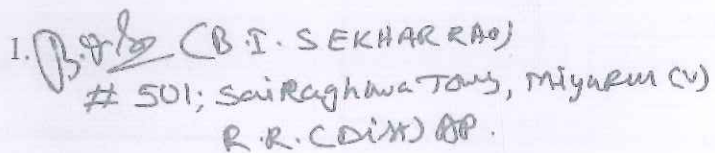 1. (B.I. SEKHAR RAO)
# 501; Sai Raghava Tows, Miyapur (V)
R.R. (Dist) AP.